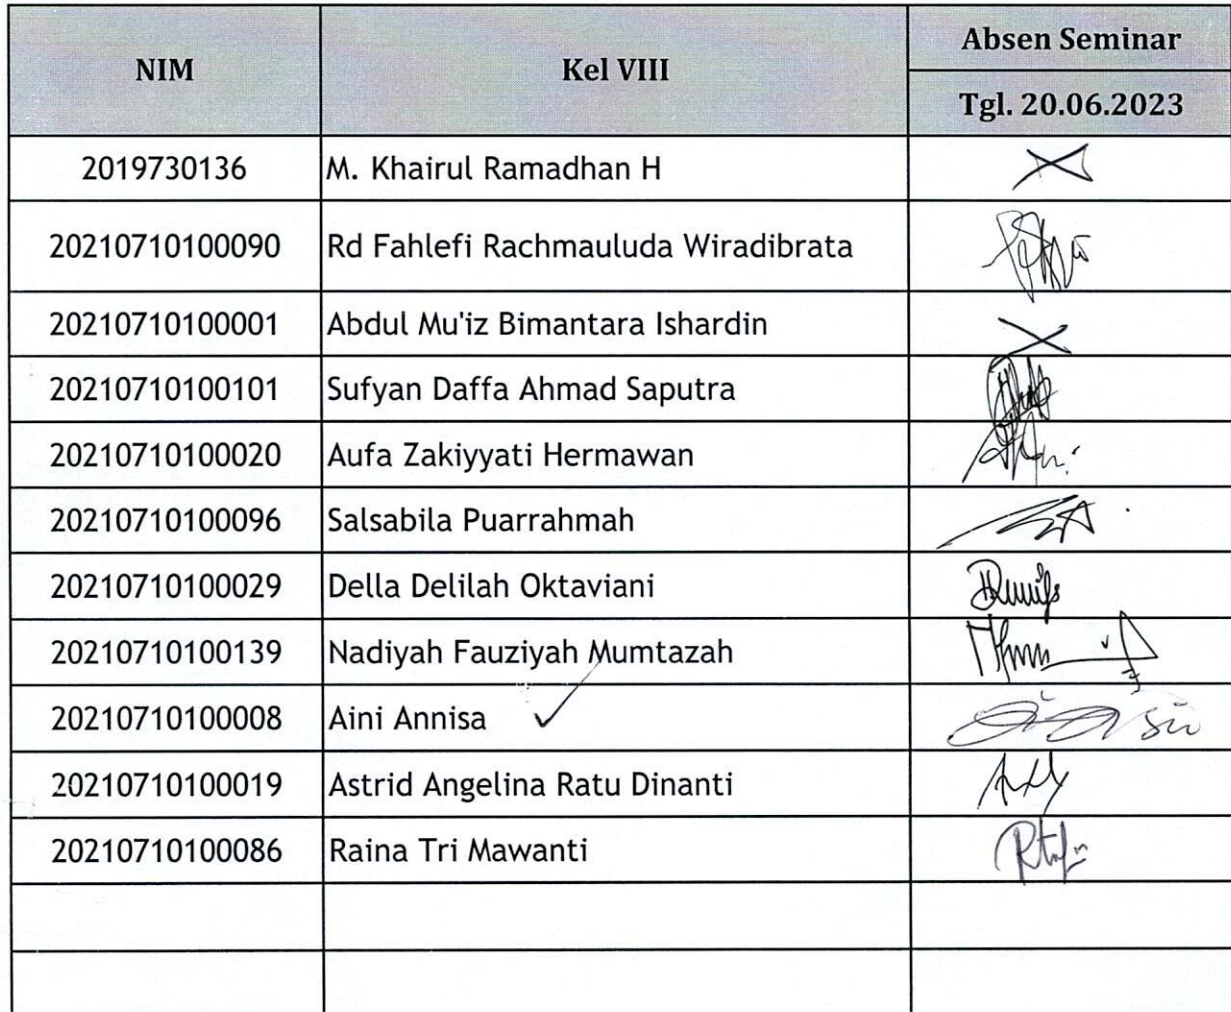 NIM Kel VIII Absen Seminar
Tgl. 20.06.2023
2019730136 M. Khairul Ramadhan H
20210710100090 Rd Fahlefi Rachmauluda Wiradibrata
20210710100001 Abdul Mu'iz Bimantara Ishardin
20210710100101 Sufyan Daffa Ahmad Saputra
20210710100020 Aufa Zakiyyati Hermawan
20210710100096 Salsabila Puarrahmah
20210710100029 Della Delilah Oktaviani
20210710100139 Nadiyah Fauziyah Mumtazah
20210710100008 Aini Annisa
20210710100019 Astrid Angelina Ratu Dinanti
20210710100086 Raina Tri Mawanti